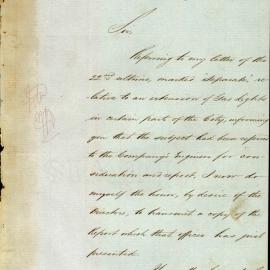 Sir,
Referring to my letter of the
22nd ultimo, marked "Separate", re-
lative to an extension of Gas Lights
in certain part of the City, informing
you that the subject had been referred
to the Company's Engineer for con-
sideration and report, I now do
myself the honor, by desire of the
Directors, to transmit a copy of the
Report which that officer has just
presented.